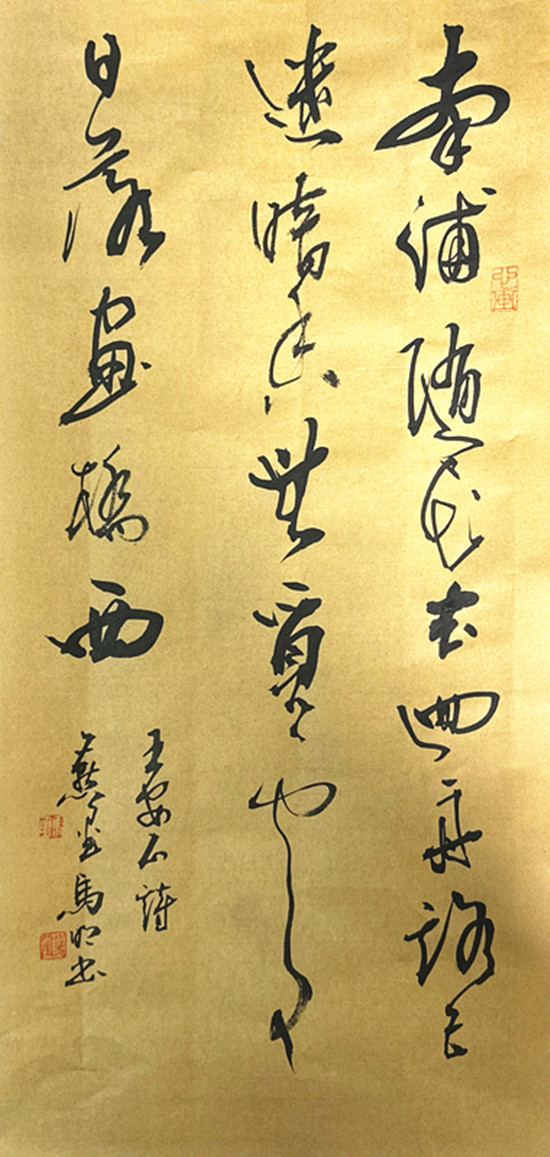 南浦隨花去迴舟路已
迷暗香無覓處
日落畫橋西
王安石詩
燕堂馬明書